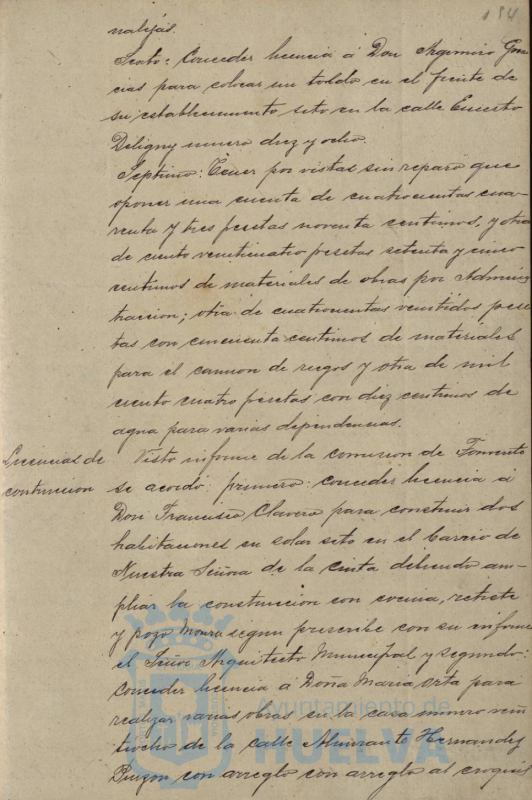 184
nalejas.
Sexto: Conceder licencia á Don Argimiro Gon
cias para colocar un toldo en el frente de
su establecimiento sito en la calle Ernesto
Deligny numero diez y ocho.
Septimo: Tener por vistas sin reparo que
oponer una cuenta de cuatrocientas cua-
renta y tres pesetas noventa centimos, y otra
de ciento veinticuatro pesetas setenta y cinco
centimos de materiales de obras por Adminis
tracion; otra de cuatrocientas veintidos pese
tas con cincuenta centimos de materiales
para el camion de riegos y otra de mil
ciento cuatro pesetas con diez centimos de
agua para varias dependencias.
Licencias de
construccion
Visto informe de la comision de Fomento
se acordó: primero: conceder licencia á
Don Francisco Clavero para construir dos
habitaciones en solar sito en el barrio de
Nuestra Señora de la Cinta debiendo am-
pliar la construccion con cocina, retrete
y pozo Moura segun prescribe con su informe
el Señor Arquitecto Municipal y segundo:
Conceder licencia á Doña Maria Orta para
realizar varias obras en la casa numero vein
tiocho de la calle Almirante Hernandez
Pinzon con arreglo con arreglo al croquis
Ayuntamiento de
HUELVA